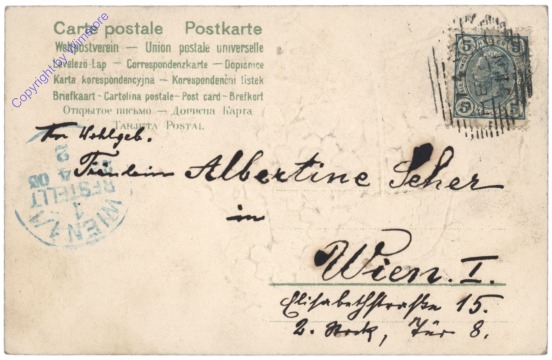 Carte postale Postkarte
Weltpostverein — Union postale universelle
Levelező-Lap — Correspondenzkarte — Dopisnice
Karta korespondencyjna — Korespondenční lístek
Briefkaart - Cartolina postale - Post card - Brefkort
Открытое письмо — Дописна Карта
Tarjeta Postal
5 5
5 5
Wohlgeb.
Fräulein Albertine Seher
in
Wien. I.
Elisabethstraße 15.
2. Stock, Tür 8.
WIEN 1/1
BESTELLT
Copyright by Wilmore